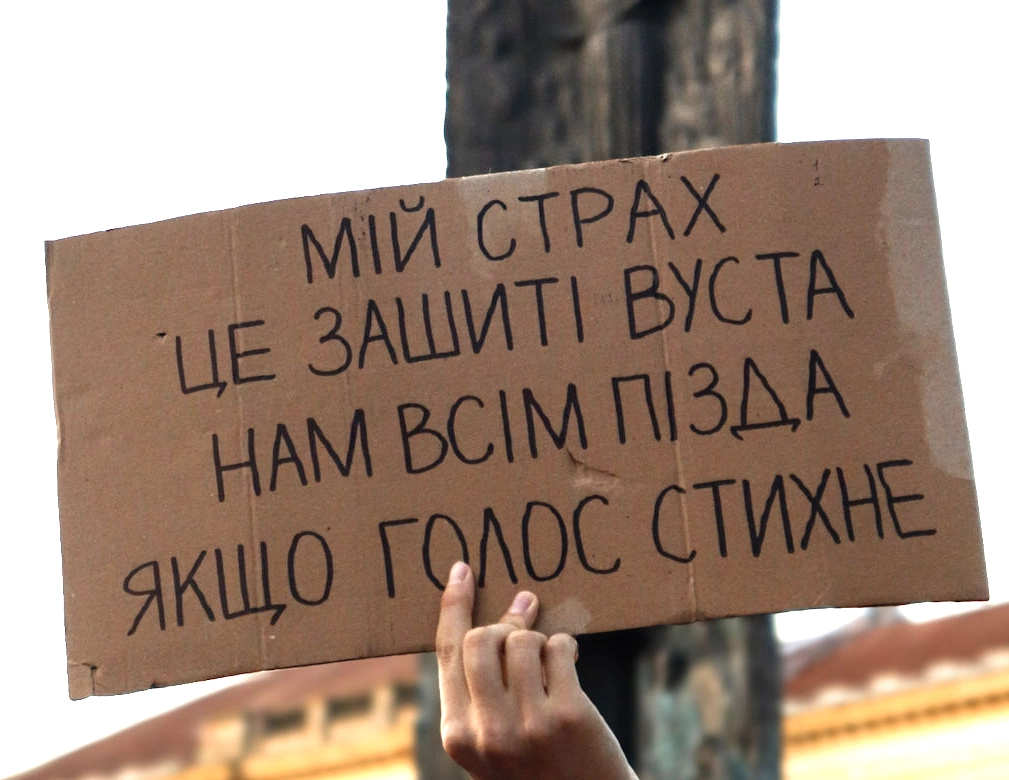 МІЙ СТРАХ
ЦЕ ЗАШИТІ ВУСТА
НАМ ВСІМ ПІЗДА
ЯКЩО ГОЛОС СТИХНЕ